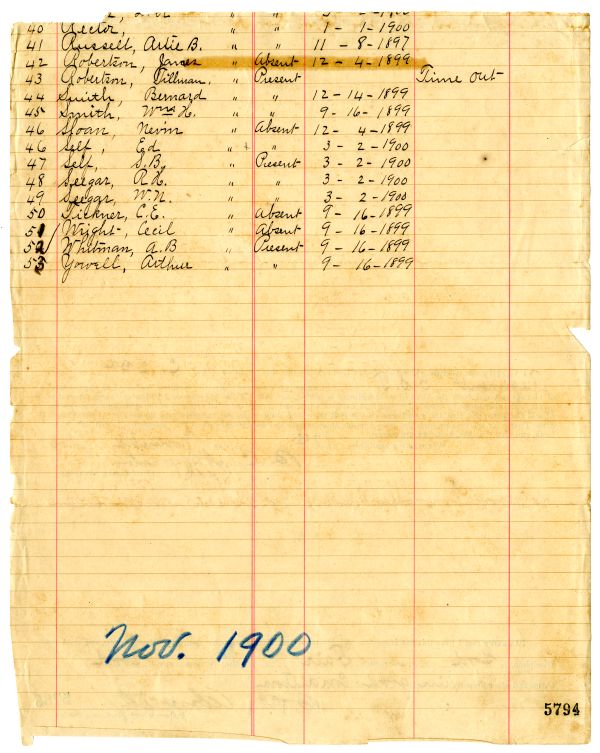 40 Rector, " " 1 - 1 - 1900
41 Russell, Artie B. " " 11 - 8 - 1897
42 Robertson, James " Absent 12 - 4 - 1899
43 Robertson, Tillman. " Present Time out
44 Smith, Bernard " " 12 - 14 - 1899
45 Smith, Wm H. " " 9 - 16 - 1899
46 Sloan, Nevin " Absent 12 - 4 - 1899
46 Self, Ed " " 3 - 2 - 1900
47 Self, S.B. " Present 3 - 2 - 1900
48 Seegar, R.H. " " 3 - 2 - 1900
49 Seegar, W.N. " " 3 - 2 - 1900
50 Tickner, C.E. " Absent 9 - 16 - 1899
51 Wright, Cecil " Absent 9 - 16 - 1899
52 Whitman, A.B " Present 9 - 16 - 1899
53 Yowell, Arthur " " 9 - 16 - 1899
Nov. 1900
5794